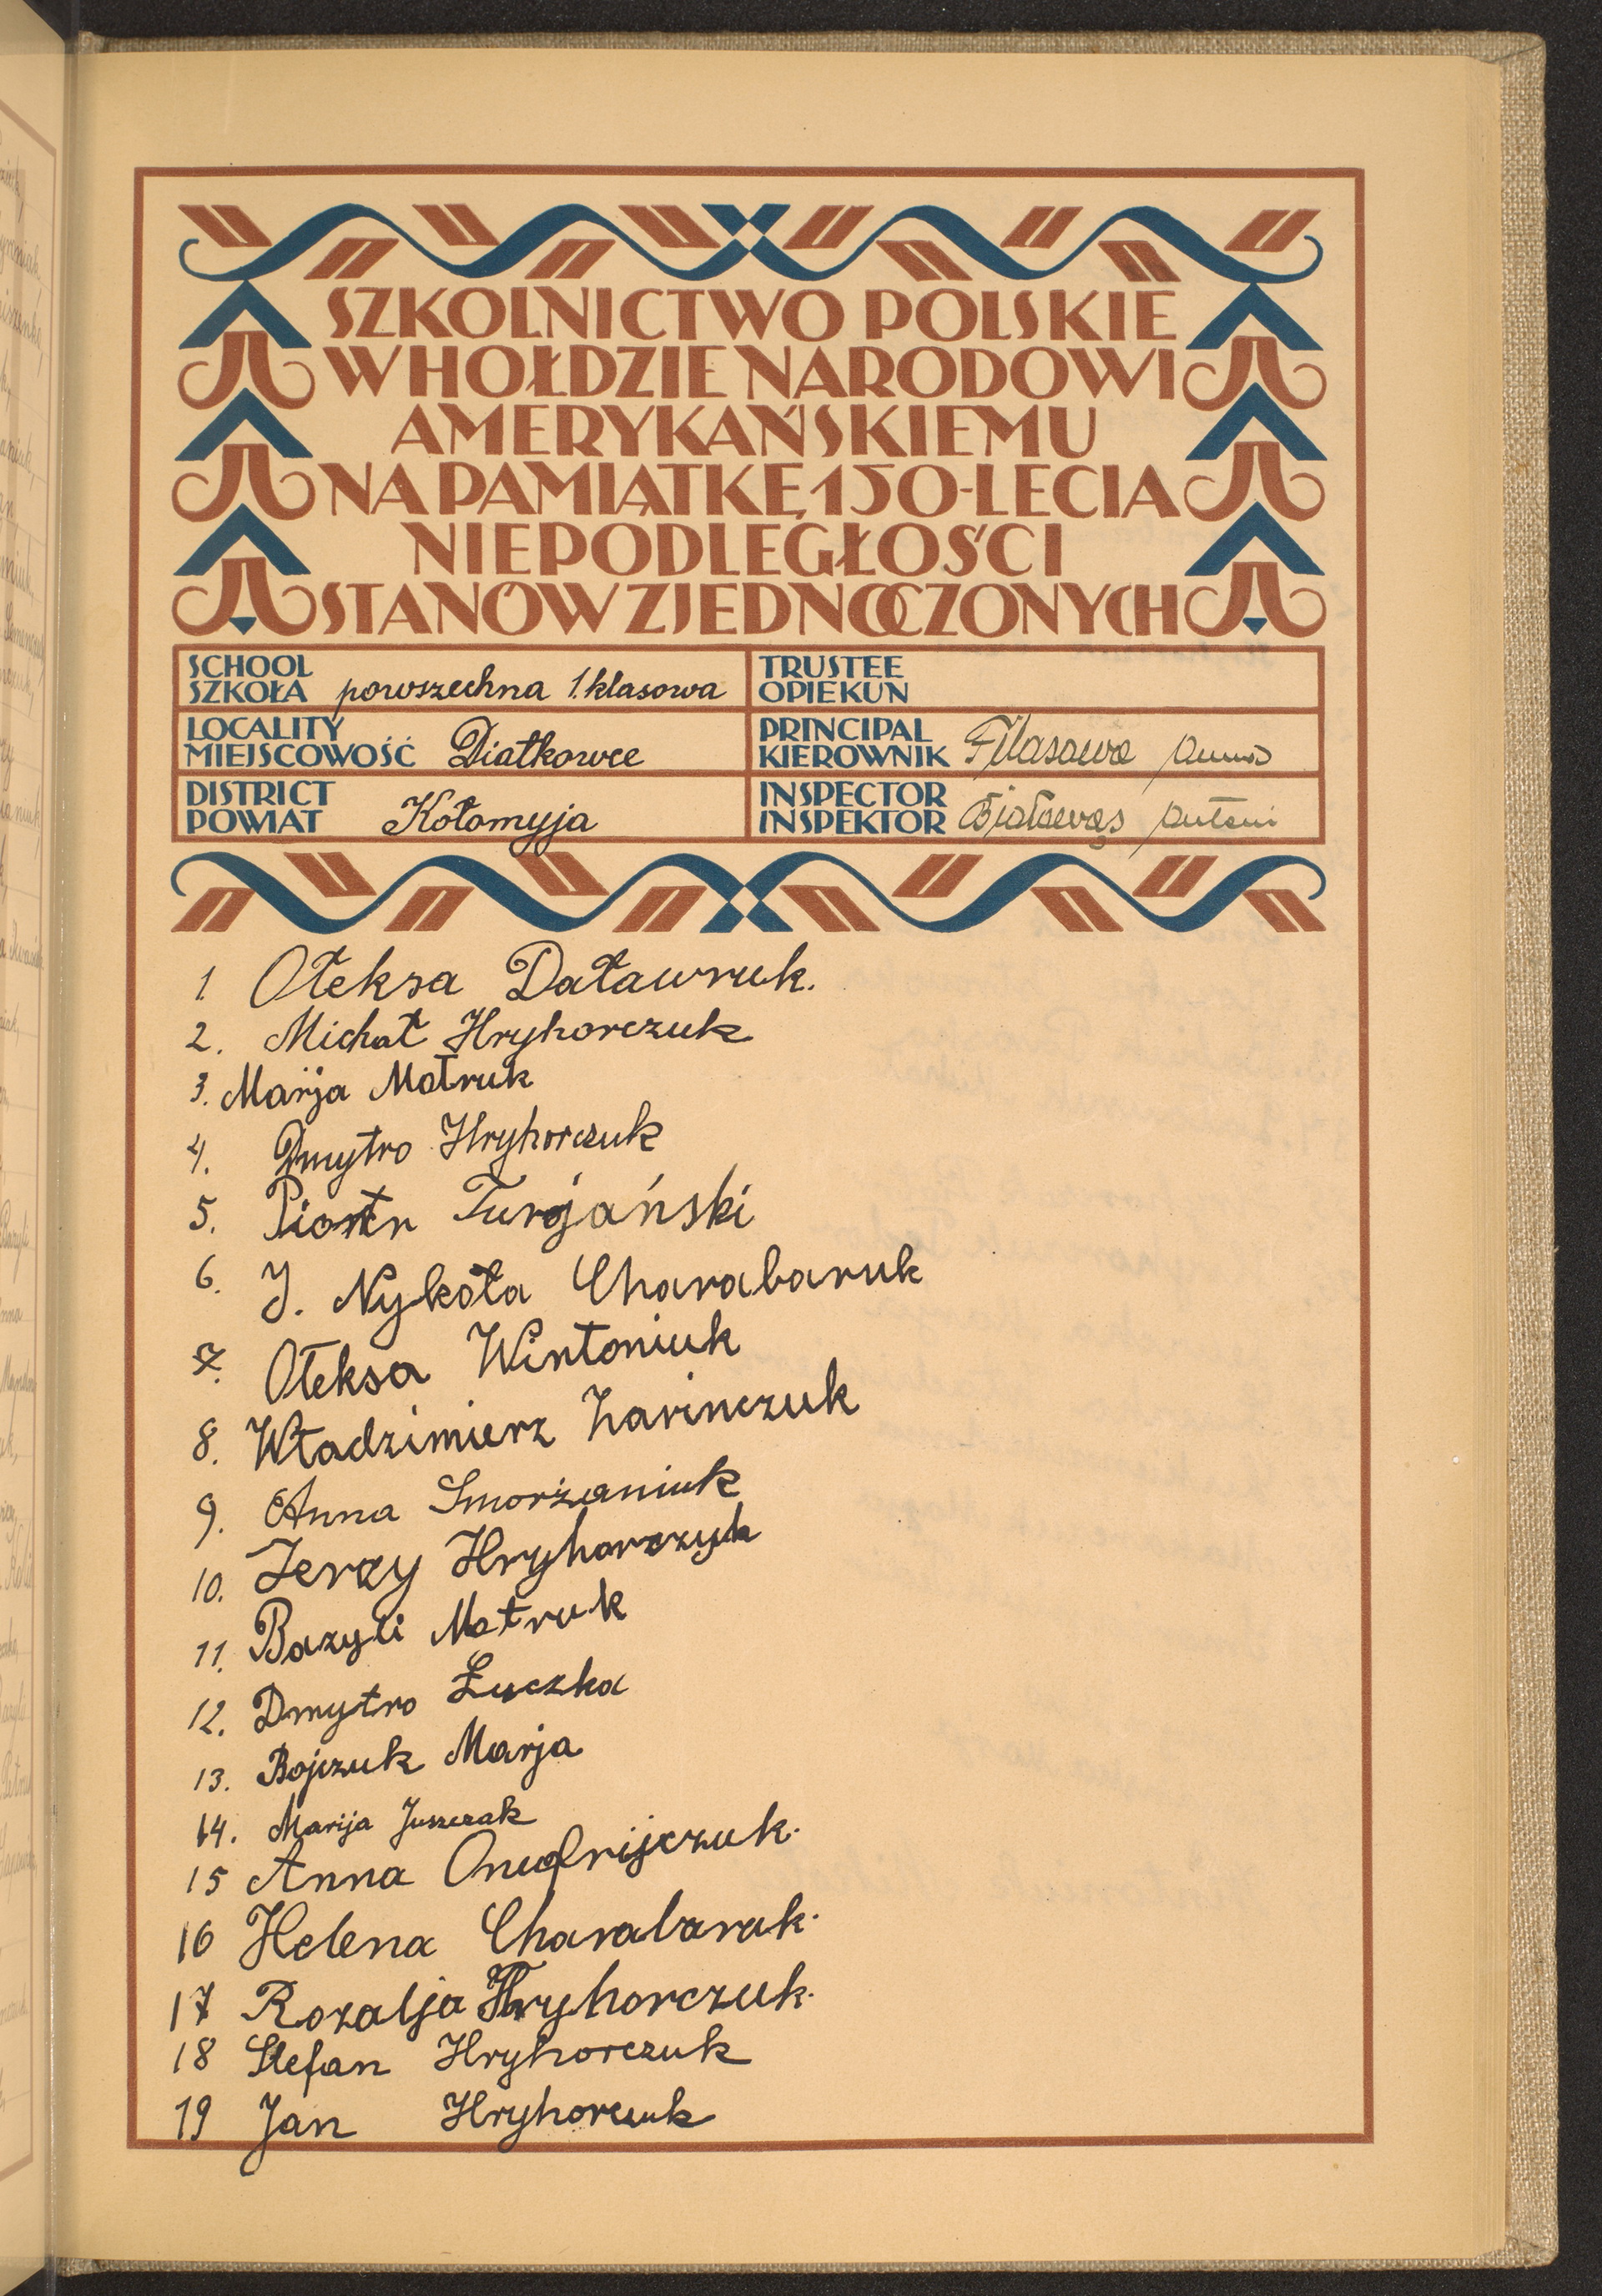 SZKOLNICTWO POLSKIE
W HOŁDZIE NARODOWI
AMERYKAŃSKIEMU
NA PAMIĄTKĘ 150-LECIA
NIEPODLEGŁOŚCI
STANÓW ZJEDNOCZONYCH
SCHOOL
SZKOŁA powszechna 1. klasowa
TRUSTEE
OPIEKUN
LOCALITY
MIEJSCOWOŚĆ Diatkowce
PRINCIPAL
KIEROWNIK Filasowa Anna
DISTRICT
POWIAT Kołomyja
INSPECTOR
INSPEKTOR Białowąs Antoni
1. Ołeksa Datawruk.
2. Michał Hryhorczuk
3. Marja Motruk
4. Dmytro Hryhorczuk
5. Piotr Turjański
6. J. Nykoła Charabaruk
7. Ołeksa Wintoniuk
8. Władzimierz Łarinczuk
9. Anna Smorżaniuk
10. Jerzy Hryhorczuk
11. Bazyli Motruk
12. Dmytro Łuczka
13. Bojczuk Marja
14. Marija Juszczak
15 Anna Onufrijczuk.
16 Helena Charabaruk.
17 Rozalja Hryhorczuk.
18 Stefan Hryhorczuk
19 Jan Hryhorczuk